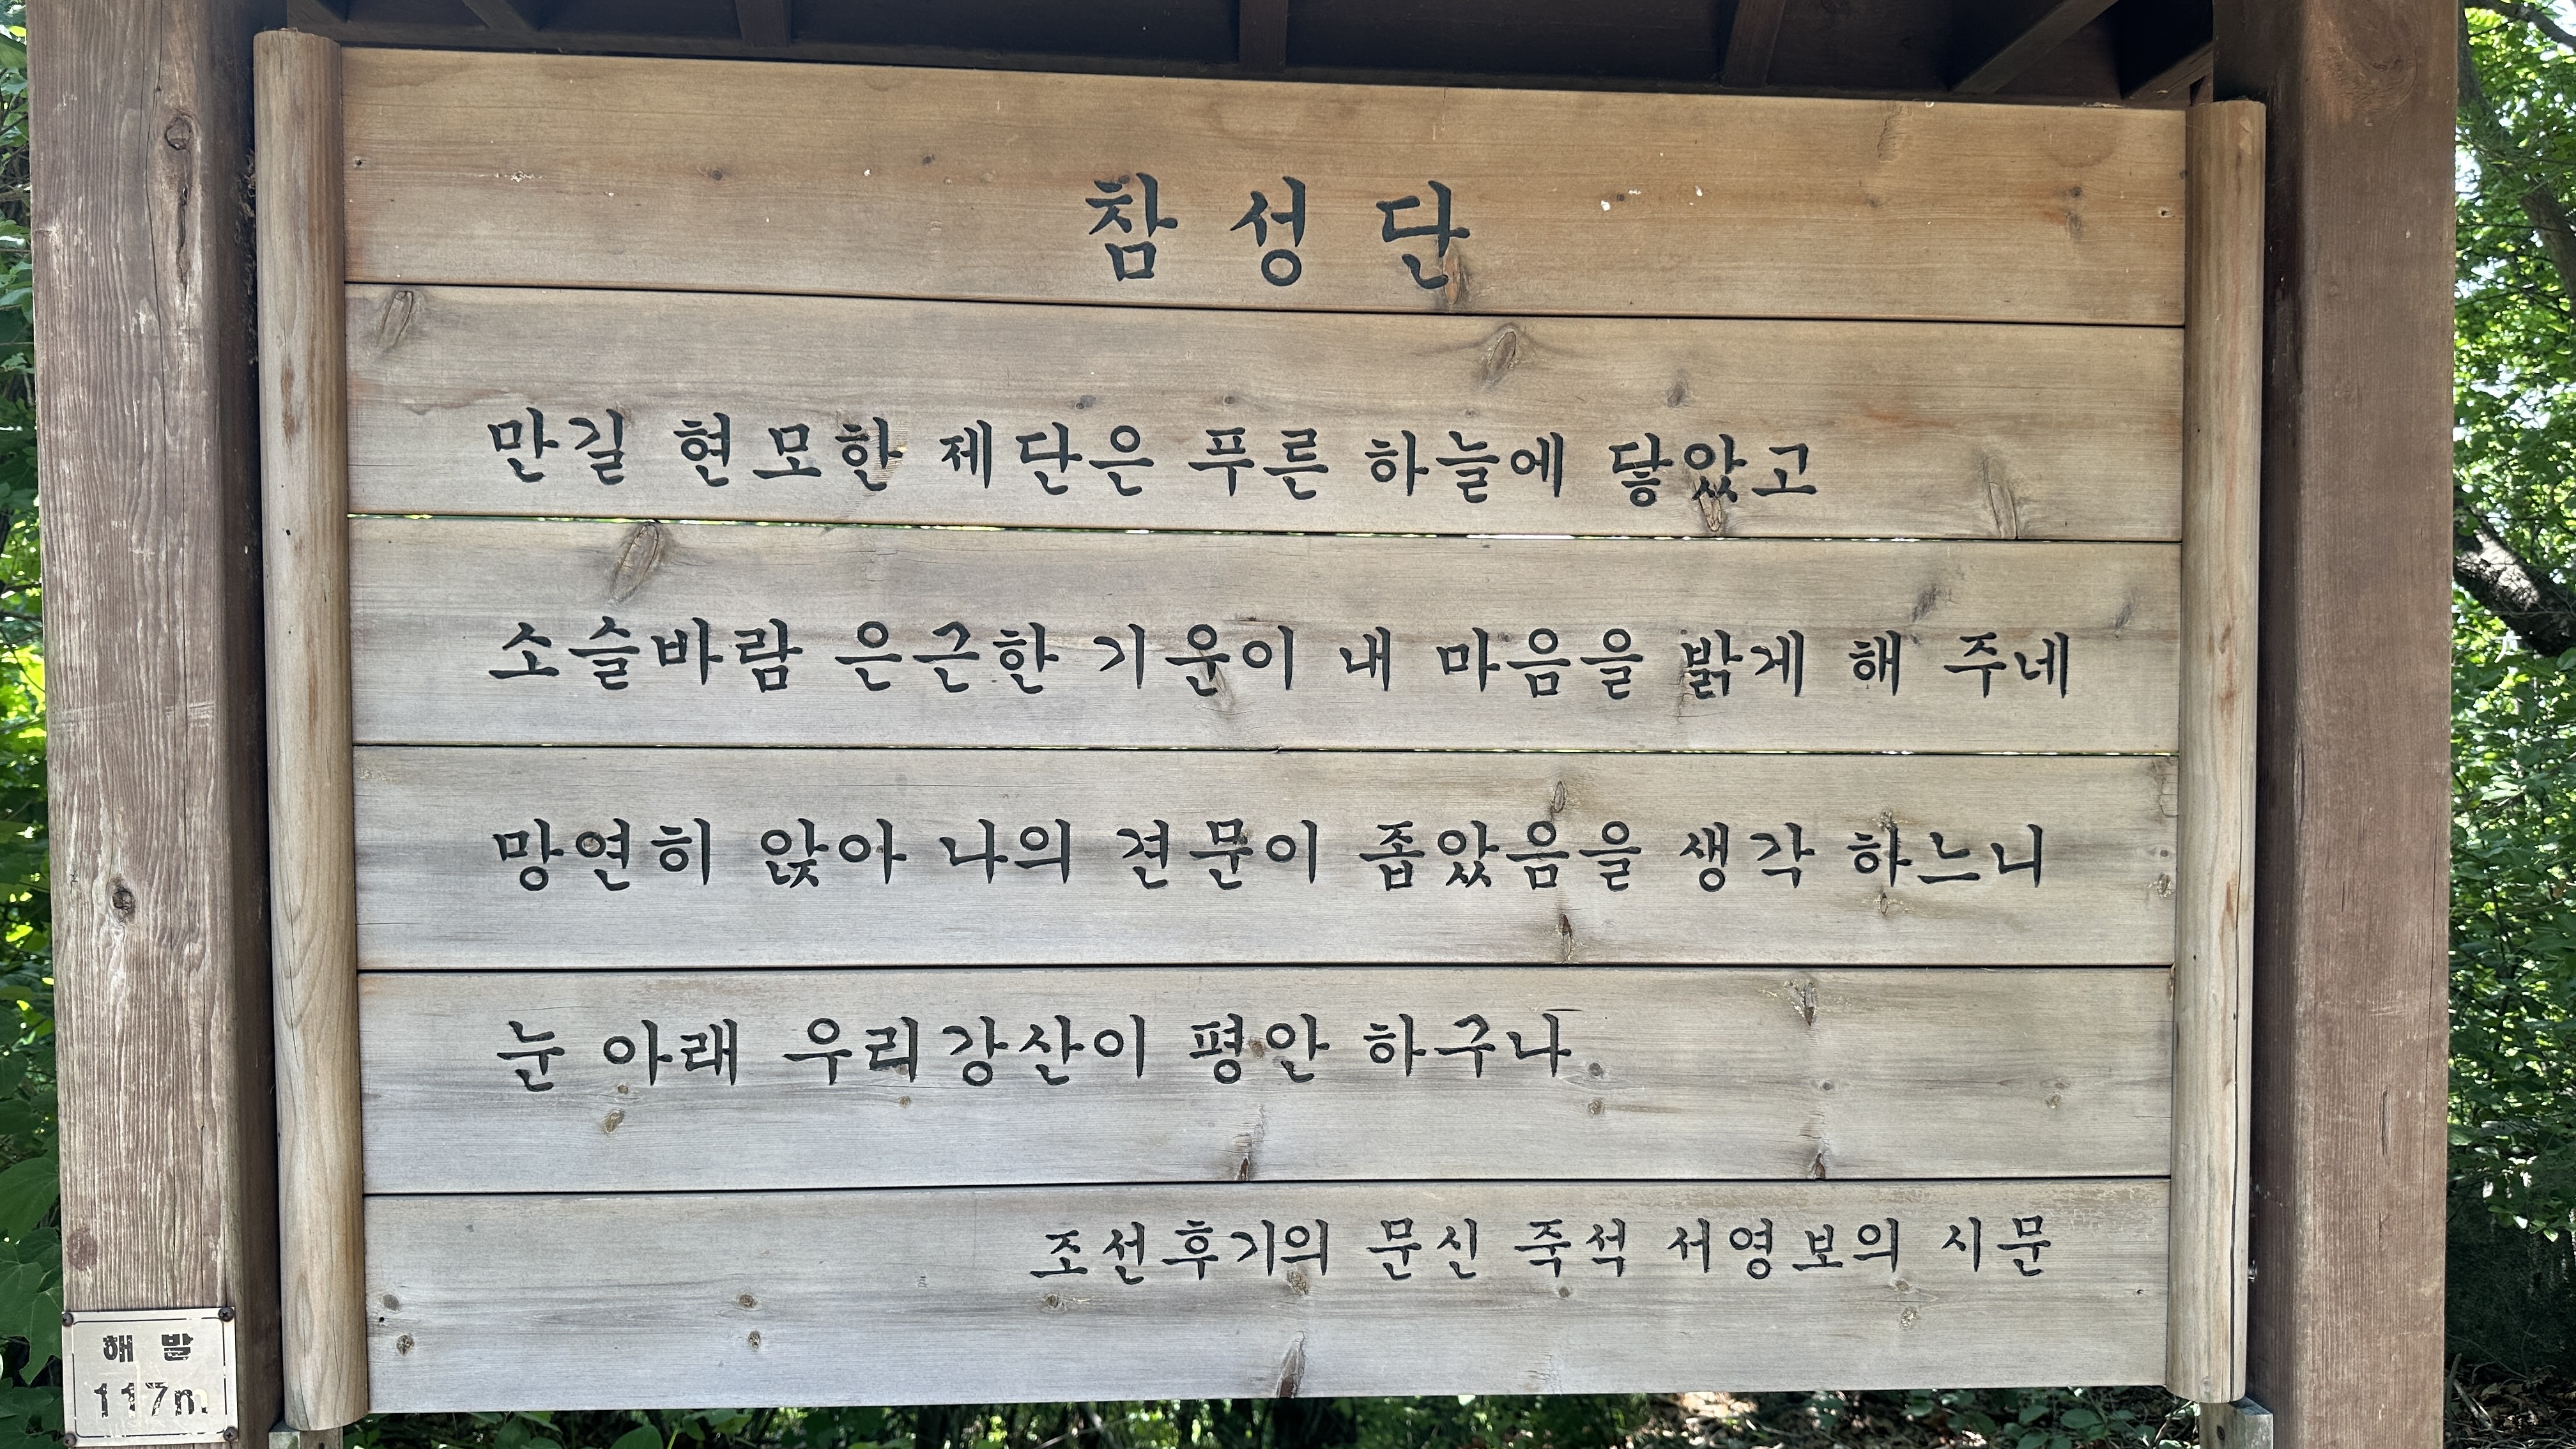 참성단
만길 현모한 제단은 푸른 하늘에 닿았고
소슬바람 은근한 기운이 내 마음을 밝게 해 주네
망연히 앉아 나의 견문이 좁았음을 생각 하느니
눈 아래 우리강산이 평안 하구나
조선후기의 문신 죽석 서영보의 시문
해발
117m